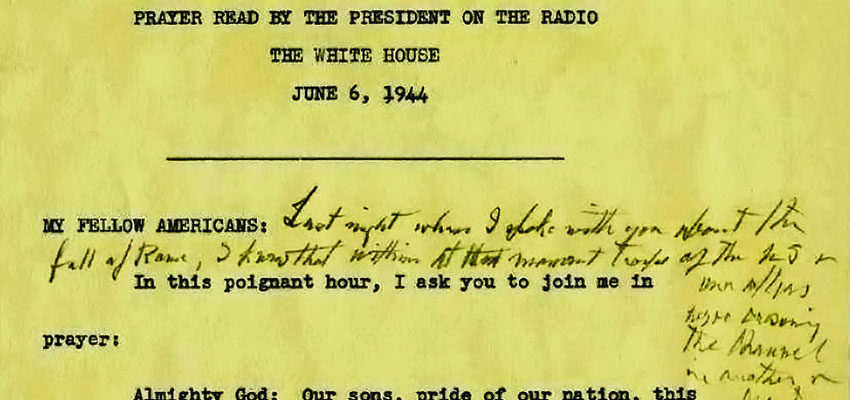 PRAYER READ BY THE PRESIDENT ON THE RADIO
THE WHITE HOUSE
JUNE 6, 1944
MY FELLOW AMERICANS: Last night when I spoke with you about the
fall of Rome, I knew that at that moment troops of the U S
In this poignant hour, I ask you to join me in
our allies
were crossing
prayer:
the Channel
in another
Almighty God: Our sons, pride of our nation, this